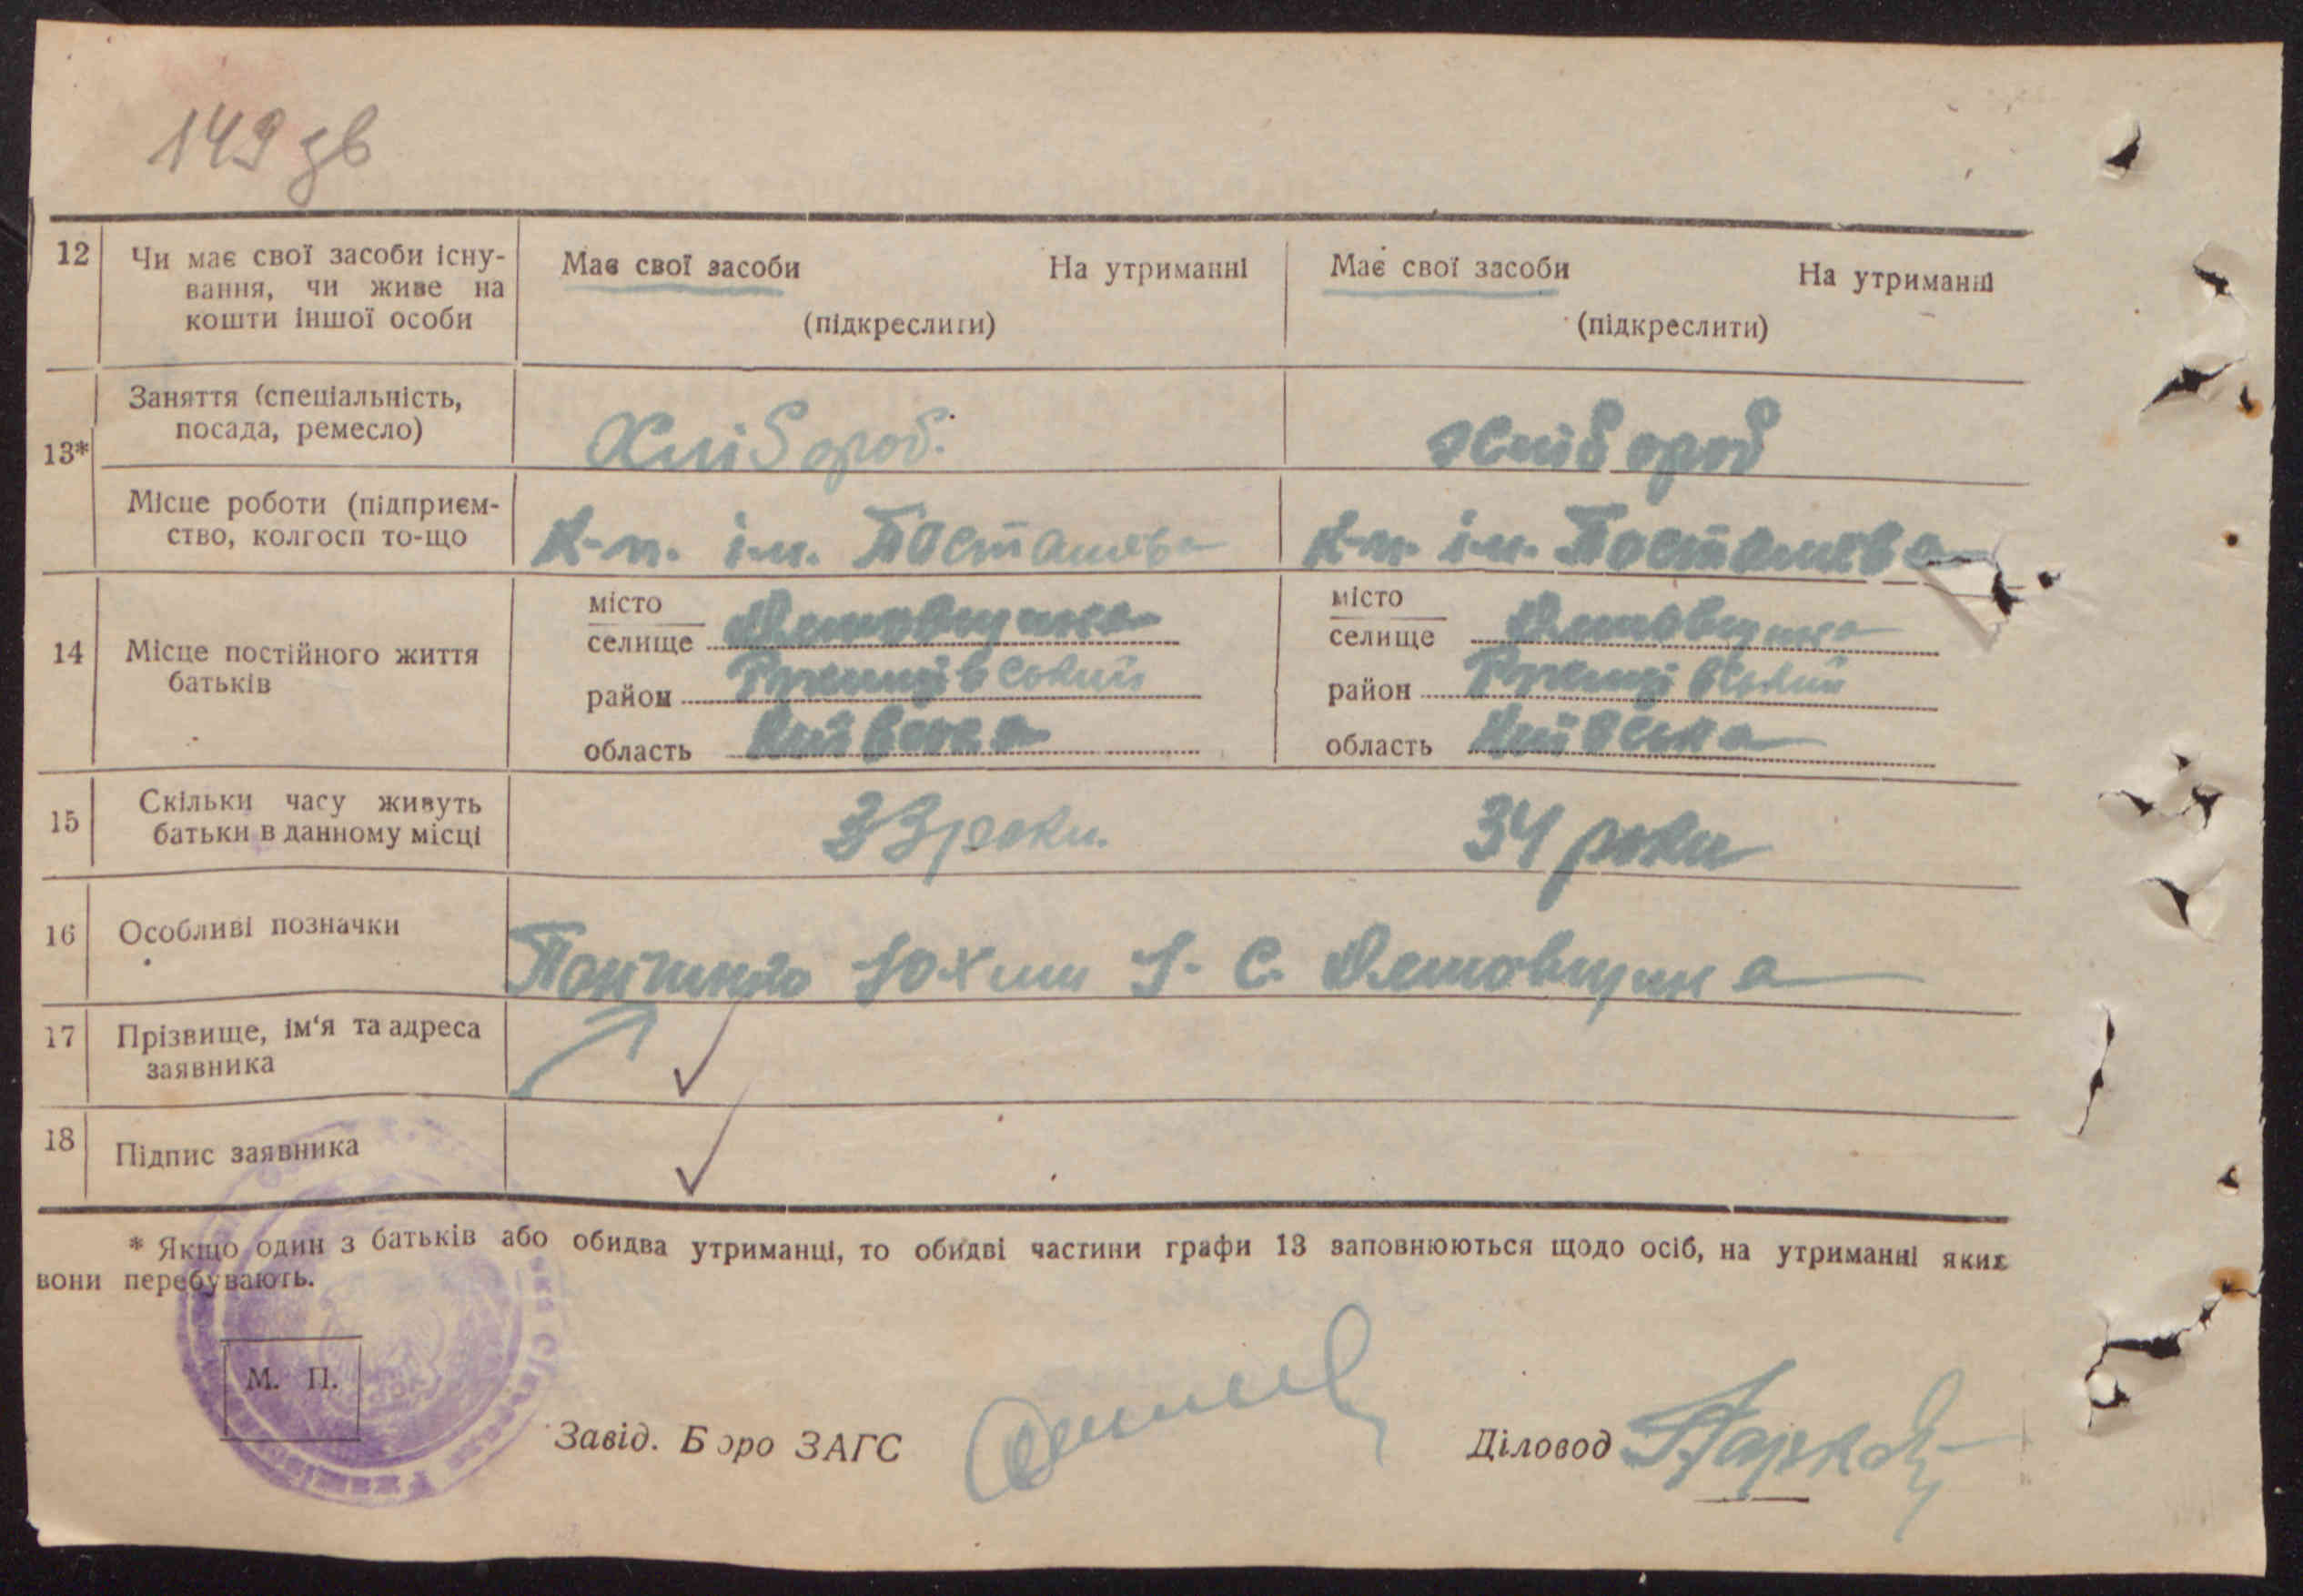 149 зв
12 Чи має свої засоби існу- Має свої засоби На утриманні Має свої засоби На утриманні
вання, чи живе на
кошти іншої особи (підкреслити) (підкреслити)
13* Заняття (спеціальність, Хлібороб. хлібороб
посада, ремесло)
Місце роботи (підприєм- К-п. ім. Постишева К-п. ім. Постишева
ство, колгосп то-що
14 Місце постійного життя місто місто
батьків селище селище
район район
область Київська область Київська
15 Скільки часу живуть 33 роки. 34 роки
батьки в данному місці
16 Особливі позначки Юхим С.
17 Прізвище, ім'я та адреса
заявника
18 Підпис заявника
* Якщо один з батьків або обидва утриманці, то обидві частини графи 13 заповнюються щодо осіб, на утриманні яких
вони перебувають.
М. П.
Завід. Бюро ЗАГС Діловод